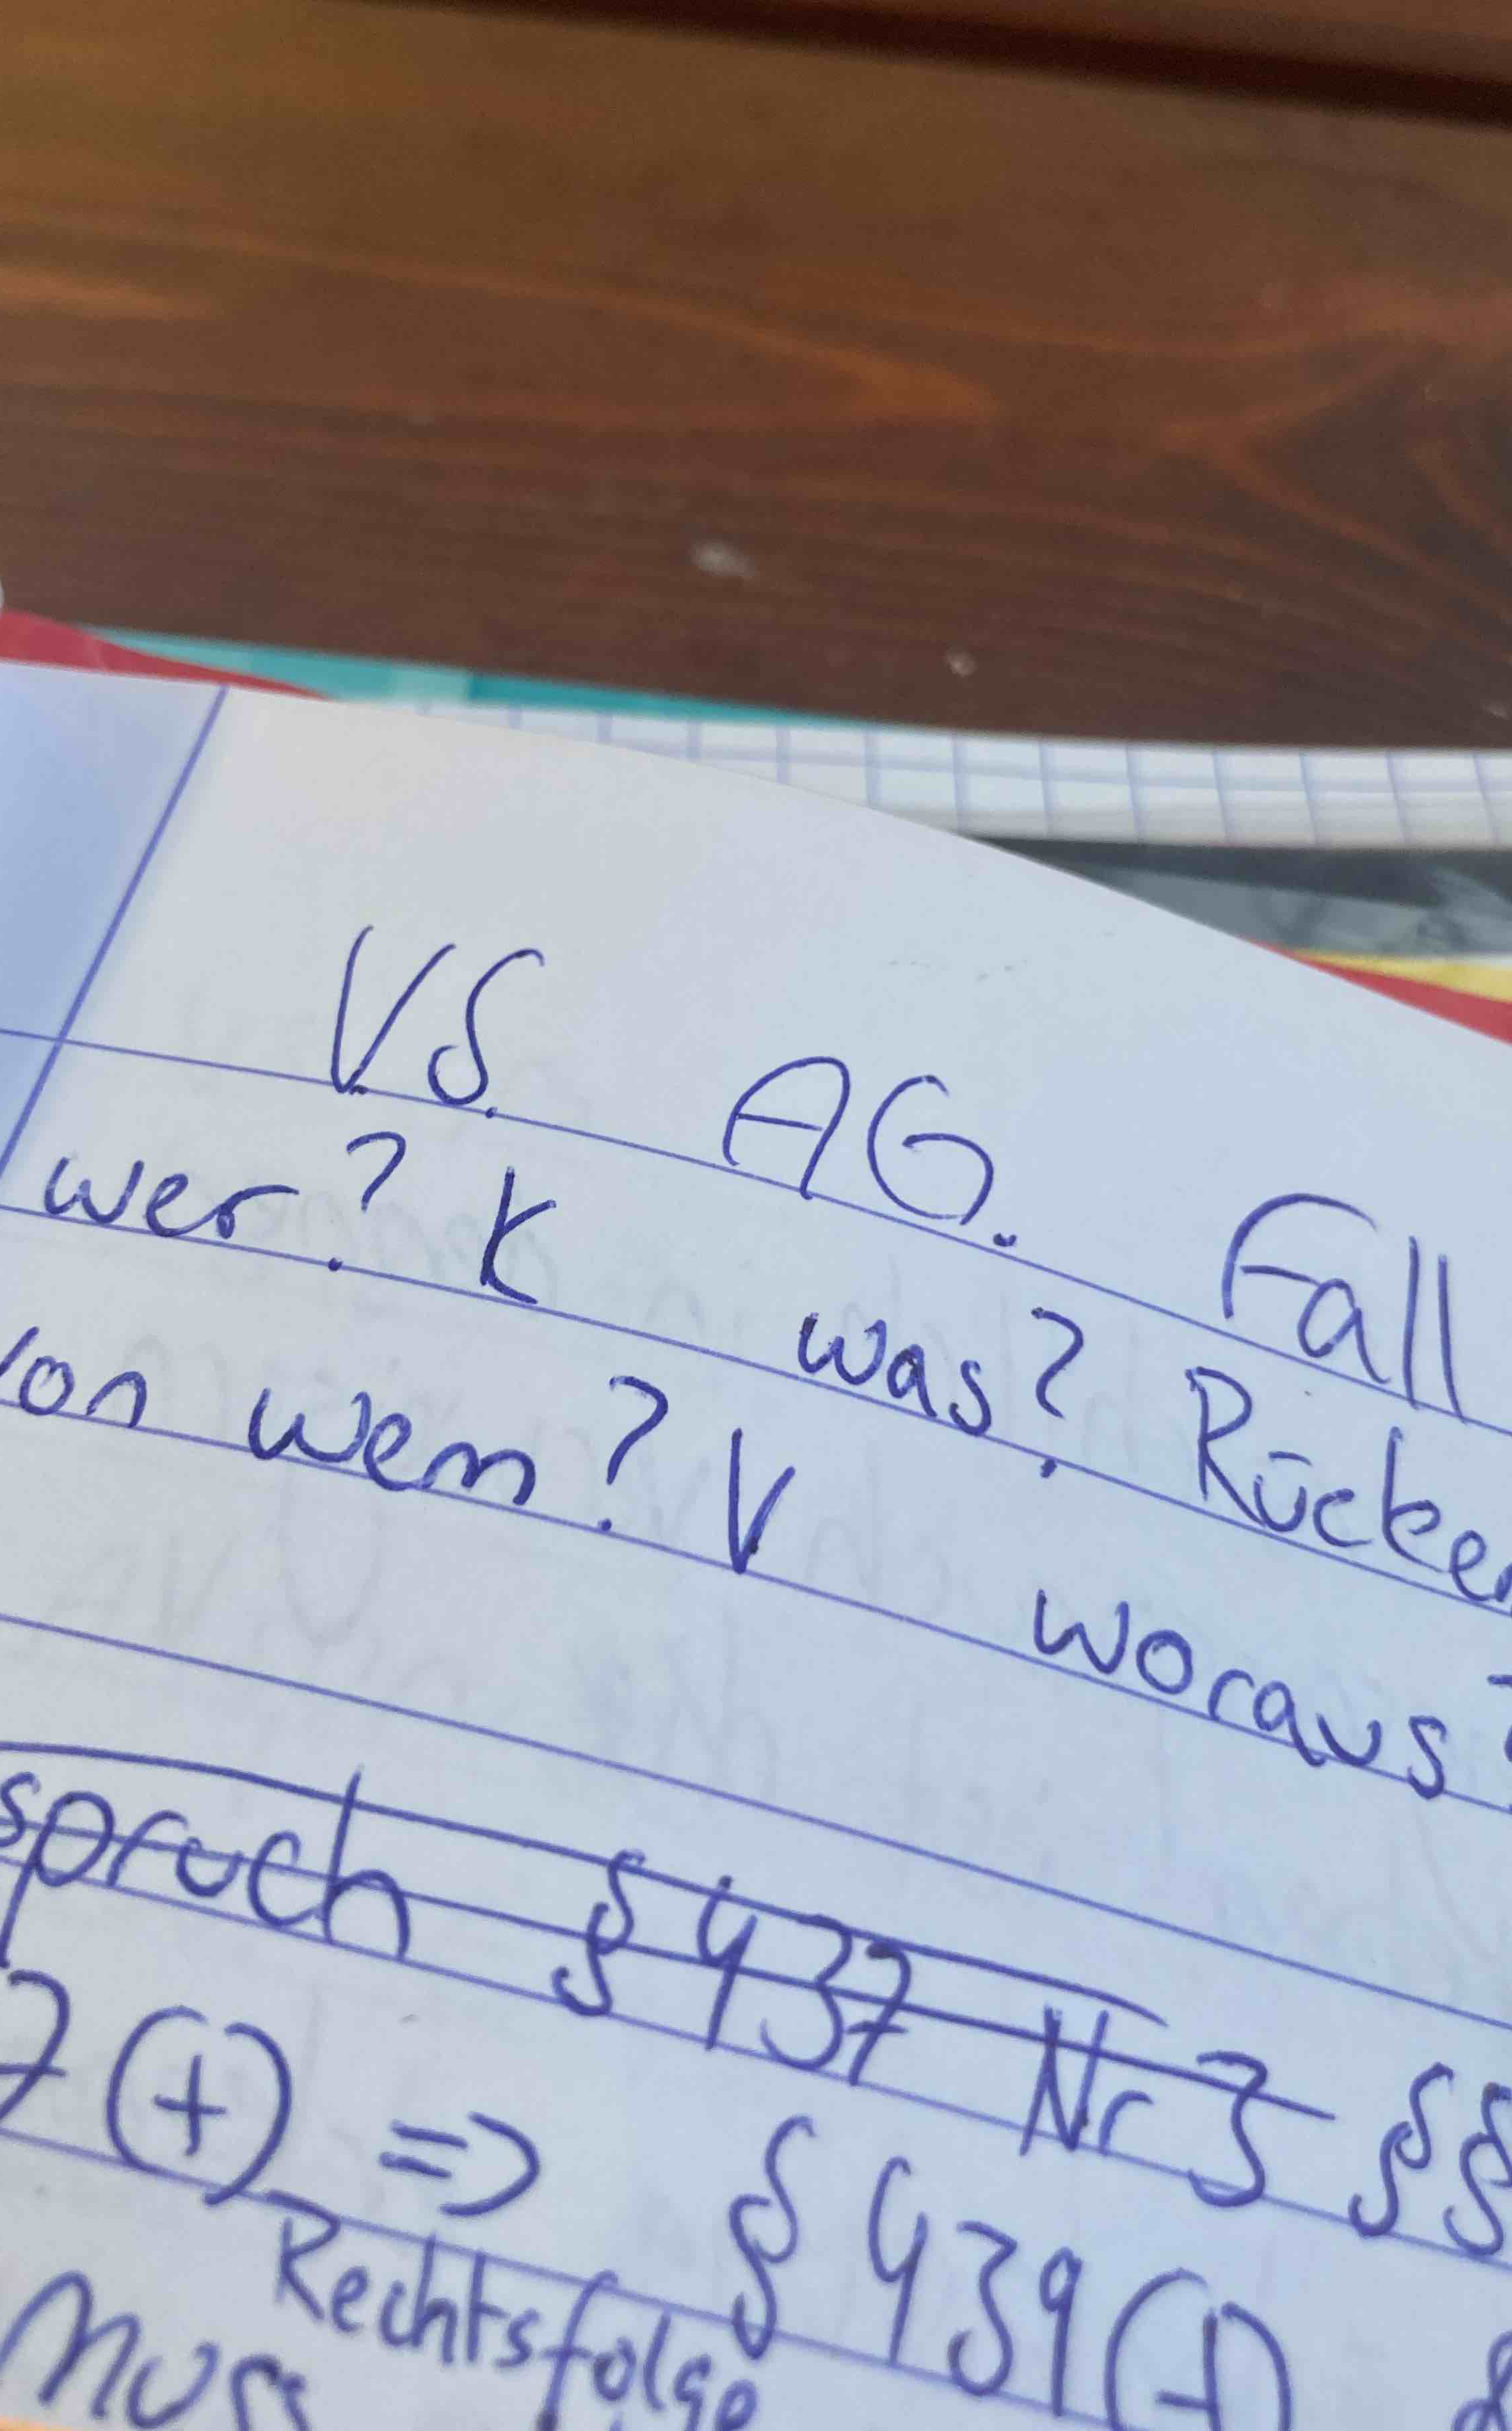 VS. AG. Fall
wer? K was? Rücker
von wem? V woraus?
spruch § 437 Nr 3 §§
7 (+) => § 439 (+)
Rechtsfolge
muss